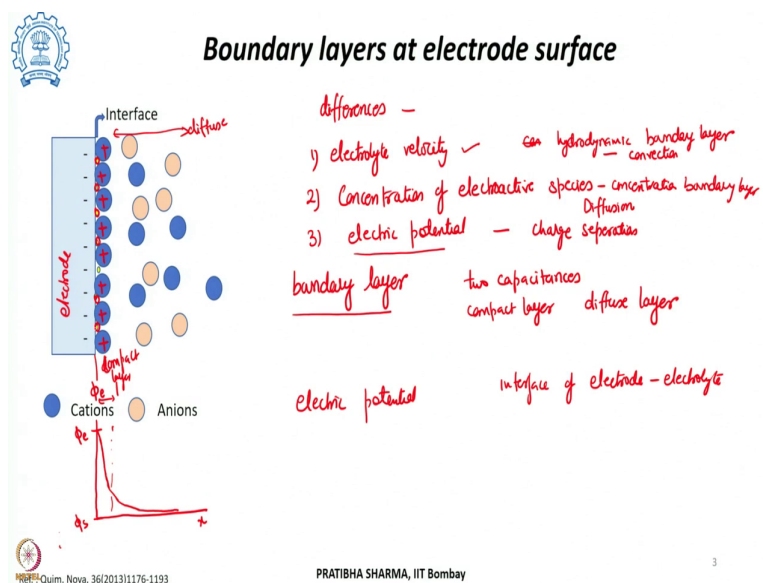 Boundary layers at electrode surface
Interface
diffuse
electrode
compact
layer
ϕe
Cations
Anions
ϕe
ϕs
x
differences –
1) electrolyte velocity ✓ – hydrodynamic banday layer
– convection
2) Concentration of electroactive species – concentration boundary layer
Diffusion
3) electric potential – charge seperation
bandary layer
two capacitances
compact layer diffuse layer
electric potential
interface of electrode – electrolyte
Ref.: Quim. Nova, 36(2013)1176-1193
PRATIBHA SHARMA, IIT Bombay
3